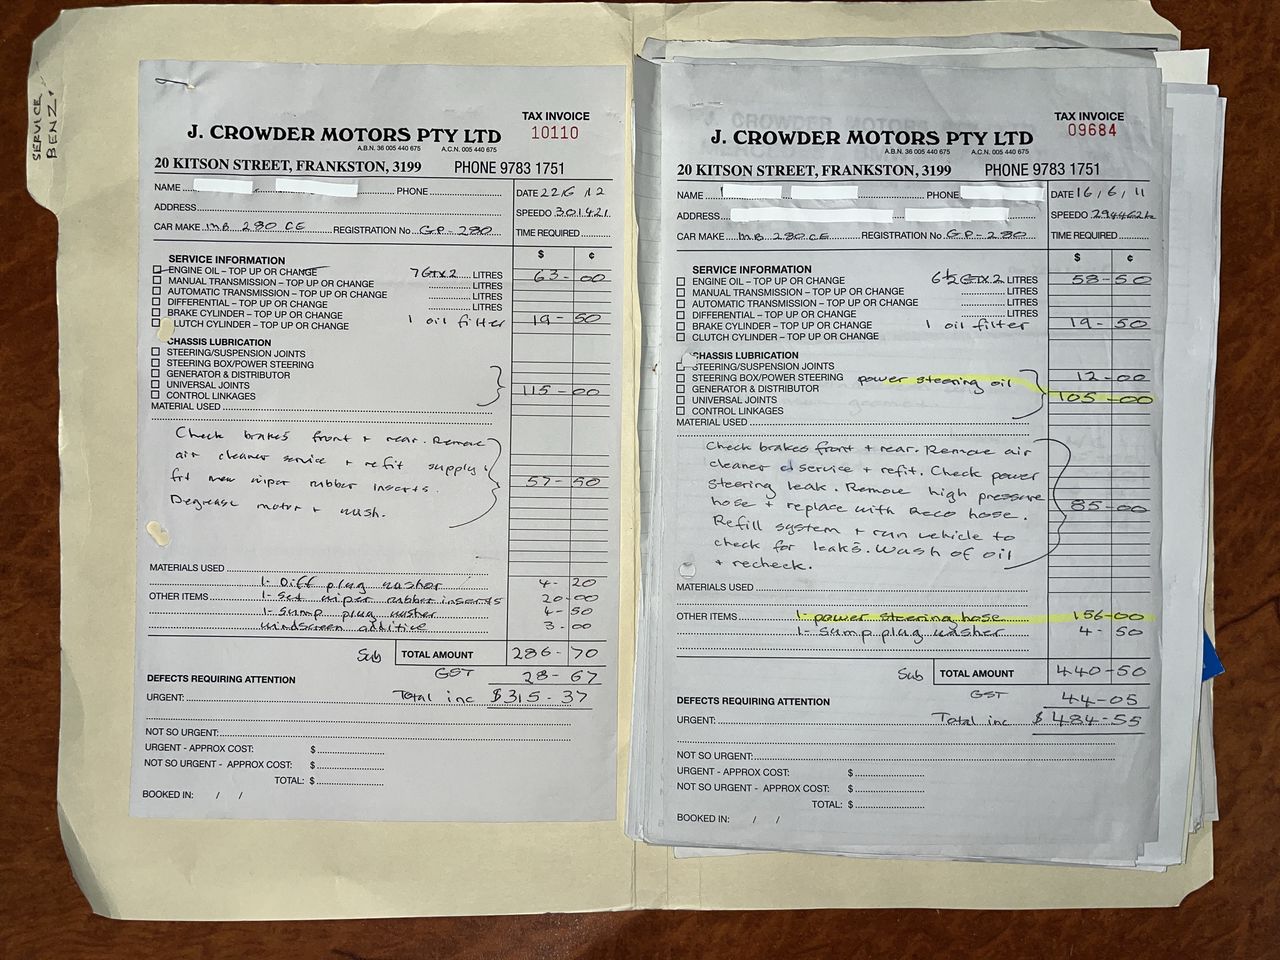 SERVICE
BENZ.
TAX INVOICE
10110
J. CROWDER MOTORS PTY LTD
A.B.N. 36 005 440 675 A.C.N. 005 440 675
20 KITSON STREET, FRANKSTON, 3199 PHONE 9783 1751
NAME PHONE DATE 22/6/12
ADDRESS SPEEDO 301421
CAR MAKE M.B. 280 CE REGISTRATION No. GP-280 TIME REQUIRED
$ ¢
SERVICE INFORMATION
ENGINE OIL – TOP UP OR CHANGE 7 GTX2 LITRES 63-00
MANUAL TRANSMISSION – TOP UP OR CHANGE LITRES
AUTOMATIC TRANSMISSION – TOP UP OR CHANGE LITRES
DIFFERENTIAL – TOP UP OR CHANGE LITRES
BRAKE CYLINDER – TOP UP OR CHANGE
CLUTCH CYLINDER – TOP UP OR CHANGE 1 oil filter 19-50
CHASSIS LUBRICATION
STEERING/SUSPENSION JOINTS
STEERING BOX/POWER STEERING
GENERATOR & DISTRIBUTOR
UNIVERSAL JOINTS 115-00
CONTROL LINKAGES
MATERIAL USED
Check brakes front + rear. Remove
air cleaner service + refit supply
fit new wiper rubber inserts. 57-50
Degrease motor + wash.
MATERIALS USED
1- Diff plug washer 4-20
OTHER ITEMS 1- Set wiper rubber inserts 20-00
1- Sump plug washer 4-50
windscreen additive 3-00
Sub TOTAL AMOUNT 286-70
DEFECTS REQUIRING ATTENTION GST 28-67
URGENT: Total inc $315-37
NOT SO URGENT:
URGENT - APPROX COST: $
NOT SO URGENT - APPROX COST: $
TOTAL: $
BOOKED IN: / /
TAX INVOICE
09684
J. CROWDER MOTORS PTY LTD
A.B.N. 36 005 440 675 A.C.N. 005 440 675
20 KITSON STREET, FRANKSTON, 3199 PHONE 9783 1751
NAME PHONE DATE 16/6/11
ADDRESS SPEEDO
CAR MAKE M.B. 280CE REGISTRATION No. GP-280 TIME REQUIRED
$ ¢
SERVICE INFORMATION
ENGINE OIL – TOP UP OR CHANGE 6½ GTX2 LITRES 58-50
MANUAL TRANSMISSION – TOP UP OR CHANGE LITRES
AUTOMATIC TRANSMISSION – TOP UP OR CHANGE LITRES
DIFFERENTIAL – TOP UP OR CHANGE LITRES
BRAKE CYLINDER – TOP UP OR CHANGE 1 oil filter 19-50
CLUTCH CYLINDER – TOP UP OR CHANGE
CHASSIS LUBRICATION
STEERING/SUSPENSION JOINTS
STEERING BOX/POWER STEERING power steering oil 12-00
GENERATOR & DISTRIBUTOR
UNIVERSAL JOINTS 105-00
CONTROL LINKAGES
MATERIAL USED
Check brakes front + rear. Remove air
cleaner service + refit. Check power
steering leak. Remove high pressure
hose + replace with Reco hose. 85-00
Refill system + run vehicle to
check for leaks. Wash of oil
+ recheck.
MATERIALS USED
OTHER ITEMS 1- power steering hose 156-00
1- Sump plug washer 4-50
Sub TOTAL AMOUNT 440-50
DEFECTS REQUIRING ATTENTION GST 44-05
URGENT: Total inc $484-55
NOT SO URGENT:
URGENT - APPROX COST: $
NOT SO URGENT - APPROX COST: $
TOTAL: $
BOOKED IN: / /